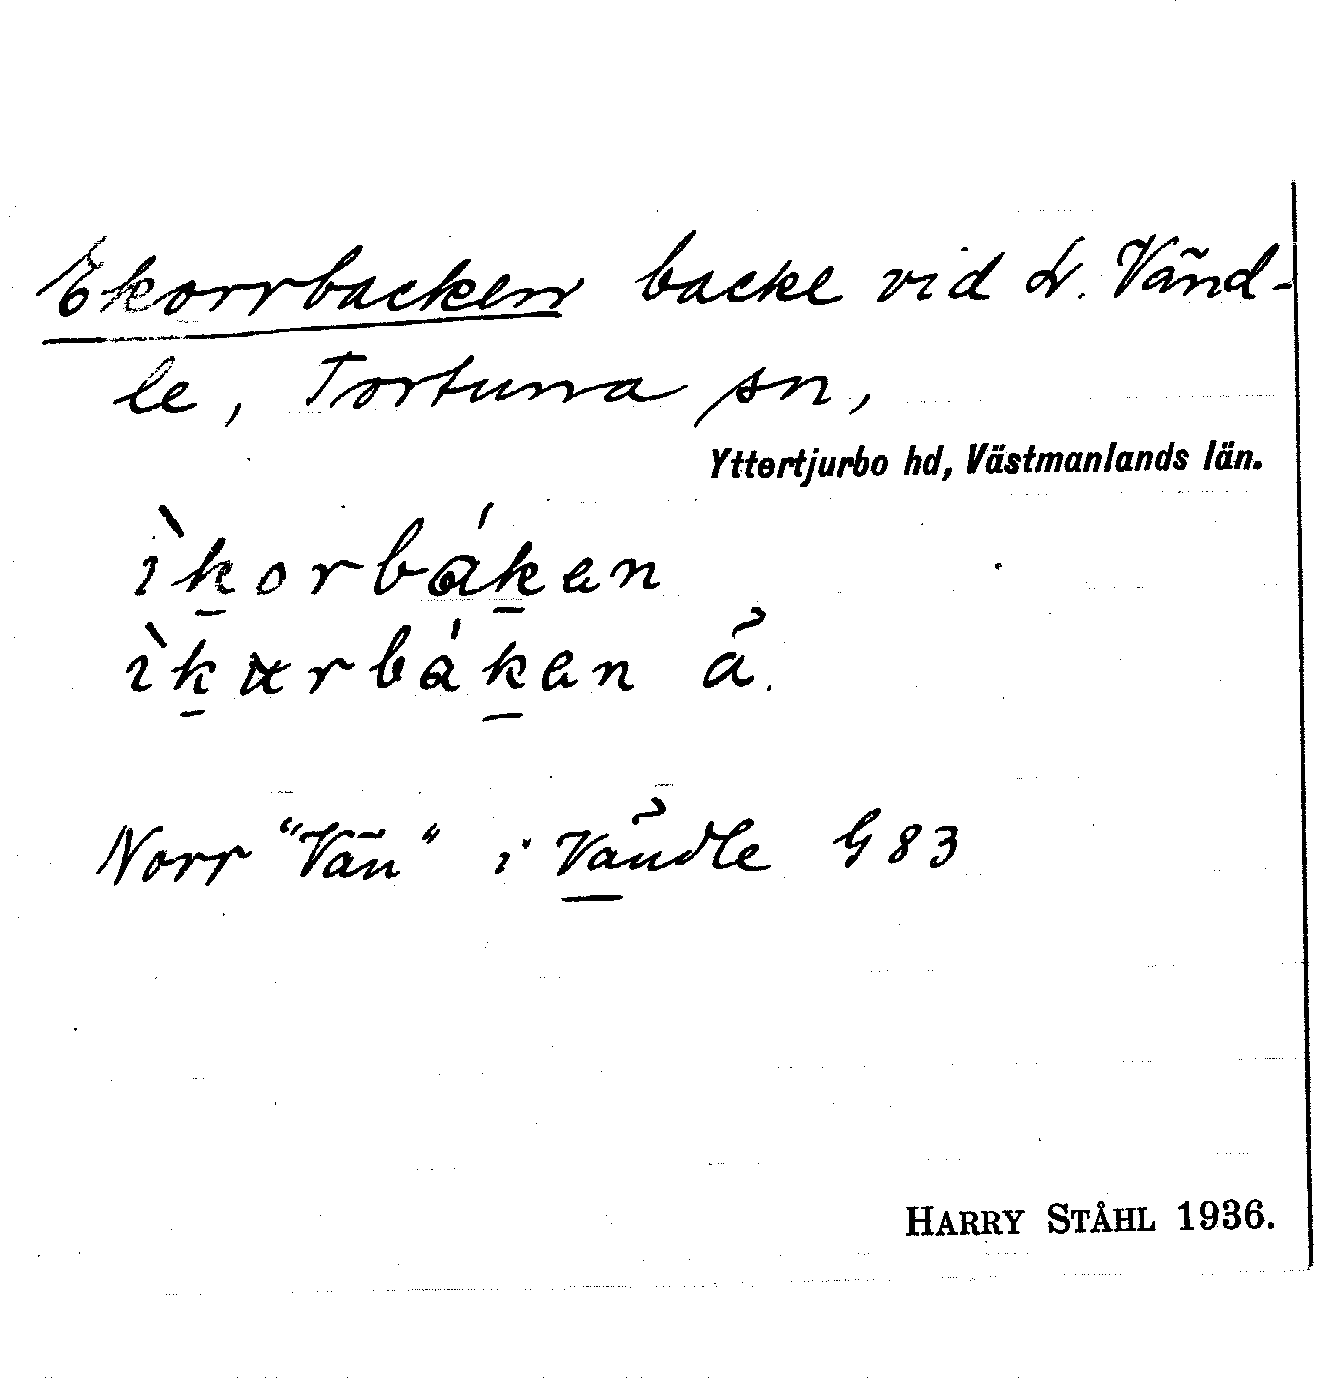 Ekorrbacken backe vid Lr. Vänd-
le, Tortuna sn,
Yttertjurbo hd, Västmanlands län.
ìkorbáken
ìkɤrbáken å.
Norr "Vän" i Vändle G 83
HARRY STÅHL 1936.